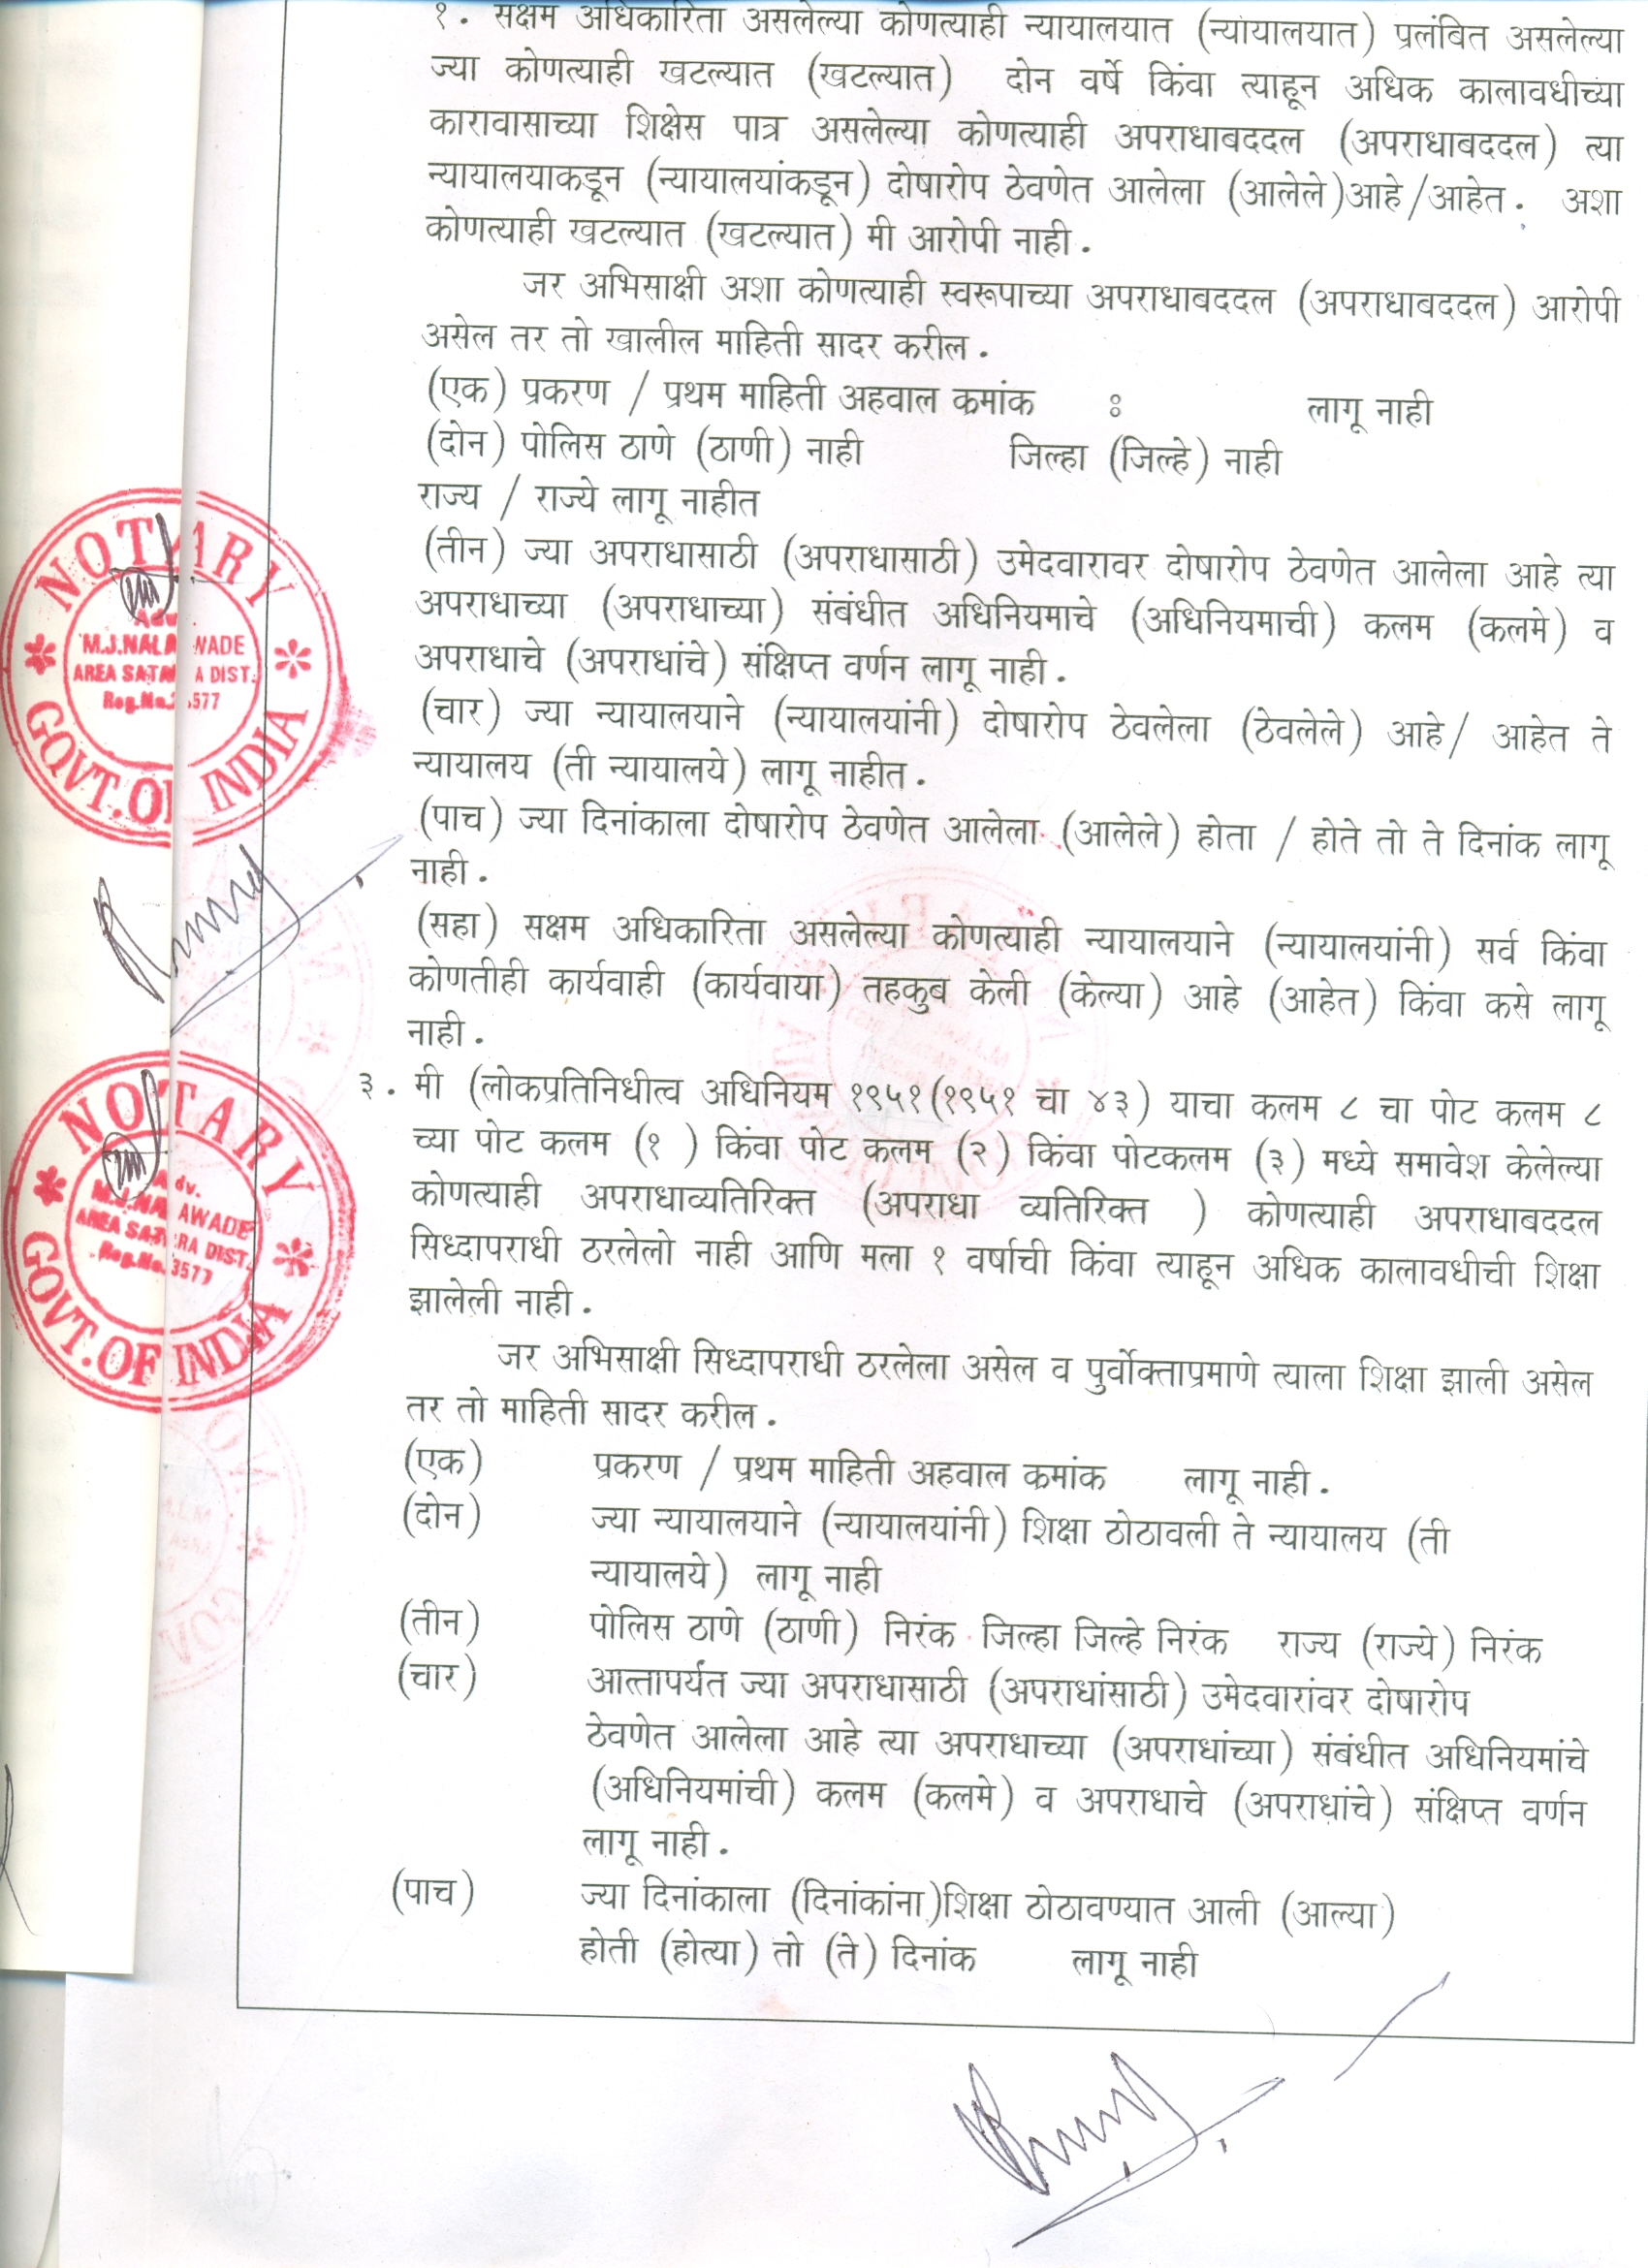 १. सक्षम अधिकारिता असलेल्या कोणत्याही न्यायालयात (न्यायालयात) प्रलंबित असलेल्या
ज्या कोणत्याही खटल्यात (खटल्यात) दोन वर्षे किंवा त्याहून अधिक कालावधीच्या
कारावासाच्या शिक्षेस पात्र असलेल्या कोणत्याही अपराधाबददल (अपराधाबददल) त्या
न्यायालयाकडून (न्यायालयांकडून) दोषारोप ठेवणेत आलेला (आलेले)आहे/आहेत. अशा
कोणत्याही खटल्यात (खटल्यात) मी आरोपी नाही.
जर अभिसाक्षी अशा कोणत्याही स्वरूपाच्या अपराधाबददल (अपराधाबददल) आरोपी
असेल तर तो खालील माहिती सादर करील.
(एक) प्रकरण / प्रथम माहिती अहवाल क्रमांक : लागू नाही
(दोन) पोलिस ठाणे (ठाणी) नाही जिल्हा (जिल्हे) नाही
राज्य / राज्ये लागू नाहीत
(तीन) ज्या अपराधासाठी (अपराधासाठी) उमेदवारावर दोषारोप ठेवणेत आलेला आहे त्या
अपराधाच्या (अपराधाच्या) संबंधीत अधिनियमाचे (अधिनियमाची) कलम (कलमे) व
अपराधाचे (अपराधांचे) संक्षिप्त वर्णन लागू नाही.
(चार) ज्या न्यायालयाने (न्यायालयांनी) दोषारोप ठेवलेला (ठेवलेले) आहे/ आहेत ते
न्यायालय (ती न्यायालये) लागू नाहीत.
(पाच) ज्या दिनांकाला दोषारोप ठेवणेत आलेला (आलेले) होता / होते तो ते दिनांक लागू
नाही.
(सहा) सक्षम अधिकारिता असलेल्या कोणत्याही न्यायालयाने (न्यायालयांनी) सर्व किंवा
कोणतीही कार्यवाही (कार्यवाया) तहकुब केली (केल्या) आहे (आहेत) किंवा कसे लागू
नाही.
३. मी (लोकप्रतिनिधीत्व अधिनियम १९५१(१९५१ चा ४३) याचा कलम ८ चा पोट कलम ८
च्या पोट कलम (१ ) किंवा पोट कलम (२) किंवा पोटकलम (३) मध्ये समावेश केलेल्या
कोणत्याही अपराधाव्यतिरिक्त (अपराधा व्यतिरिक्त ) कोणत्याही अपराधाबददल
सिध्दापराधी ठरलेलो नाही आणि मला १ वर्षाची किंवा त्याहून अधिक कालावधीची शिक्षा
झालेली नाही.
जर अभिसाक्षी सिध्दापराधी ठरलेला असेल व पुर्वोक्ताप्रमाणे त्याला शिक्षा झाली असेल
तर तो माहिती सादर करील.
(एक) प्रकरण / प्रथम माहिती अहवाल क्रमांक लागू नाही.
(दोन) ज्या न्यायालयाने (न्यायालयांनी) शिक्षा ठोठावली ते न्यायालय (ती
न्यायालये) लागू नाही
(तीन) पोलिस ठाणे (ठाणी) निरंक जिल्हा जिल्हे निरंक राज्य (राज्ये) निरंक
(चार) आत्तापर्यंत ज्या अपराधासाठी (अपराधांसाठी) उमेदवारांवर दोषारोप
ठेवणेत आलेला आहे त्या अपराधाच्या (अपराधांच्या) संबंधीत अधिनियमांचे
(अधिनियमांची) कलम (कलमे) व अपराधाचे (अपराधांचे) संक्षिप्त वर्णन
लागू नाही.
(पाच) ज्या दिनांकाला (दिनांकांना)शिक्षा ठोठावण्यात आली (आल्या)
होती (होत्या) तो (ते) दिनांक लागू नाही
NOTARY
Adv.
M.J.NALAWADE
AREA SATARA DIST.
Reg.No. 3577
GOVT.OF INDIA
NOTARY
Adv.
M.J.NALAWADE
AREA SATARA DIST.
Reg.No. 3577
GOVT.OF INDIA